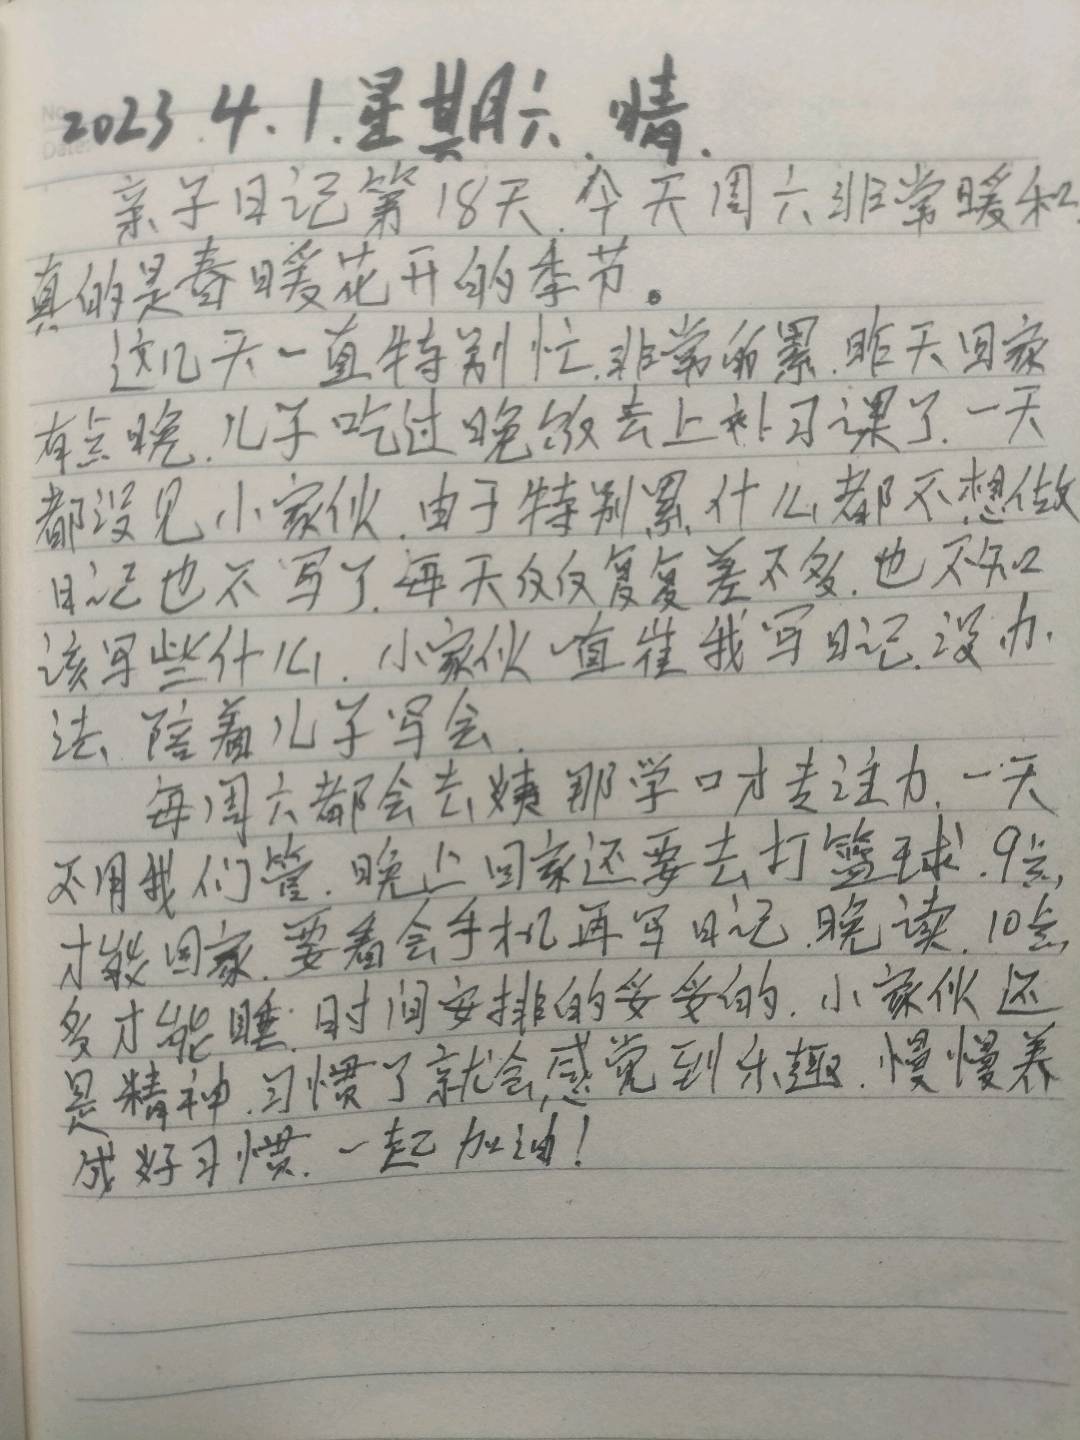 2023.4.1.星期六.晴.
亲子日记第18天.今天周六非常暖和.
真的是春暖花开的季节。
这几天一直特别忙.非常的累.昨天回家
有点晚.儿子吃过晚饭去上补习课了.一天
都没见小家伙.由于特别累.什么都不想做
日记也不写了.每天反反复复差不多.也不知
该写些什么.小家伙一直催我写日记.没办
法、陪着儿子写会.
每周六都会去姨那学口才专注力.一天
不用我们管.晚上回家还要去打篮球.9点
才能回家.要看会手机再写日记.晚读.10点
多才能睡.时间安排的妥妥的.小家伙还
是精神.习惯了就会感觉到乐趣.慢慢养
成好习惯.一起加油!